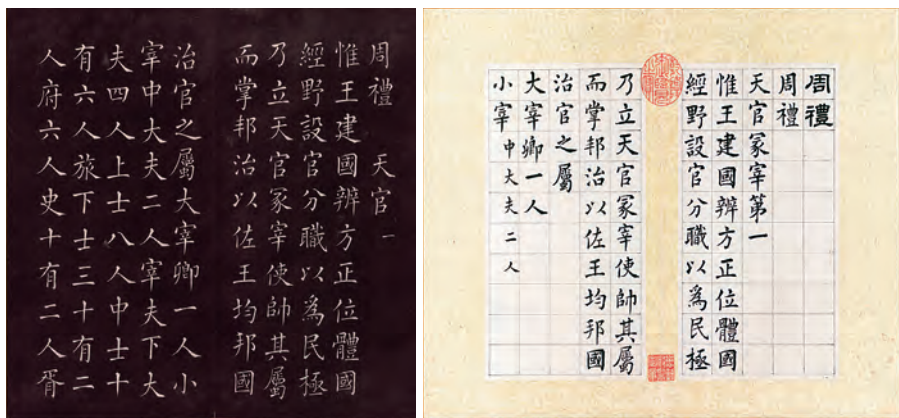 周禮 天官 一
惟王建國辨方正位體國
經野設官分職以爲民極
乃立天官冢宰使帥其屬
而掌邦治以佐王均邦國
治官之屬大宰卿一人小
宰中大夫二人宰夫下大
夫四人上士八人中士十
有六人旅下士三十有二
人府六人史十有二人胥
周禮
周禮
天官冢宰第一
惟王建國辨方正位體國
經野設官分職以爲民極
乃立天官冢宰使帥其屬
而掌邦治以佐王均邦國
治官之屬
大宰卿一人
小宰 中大夫二人